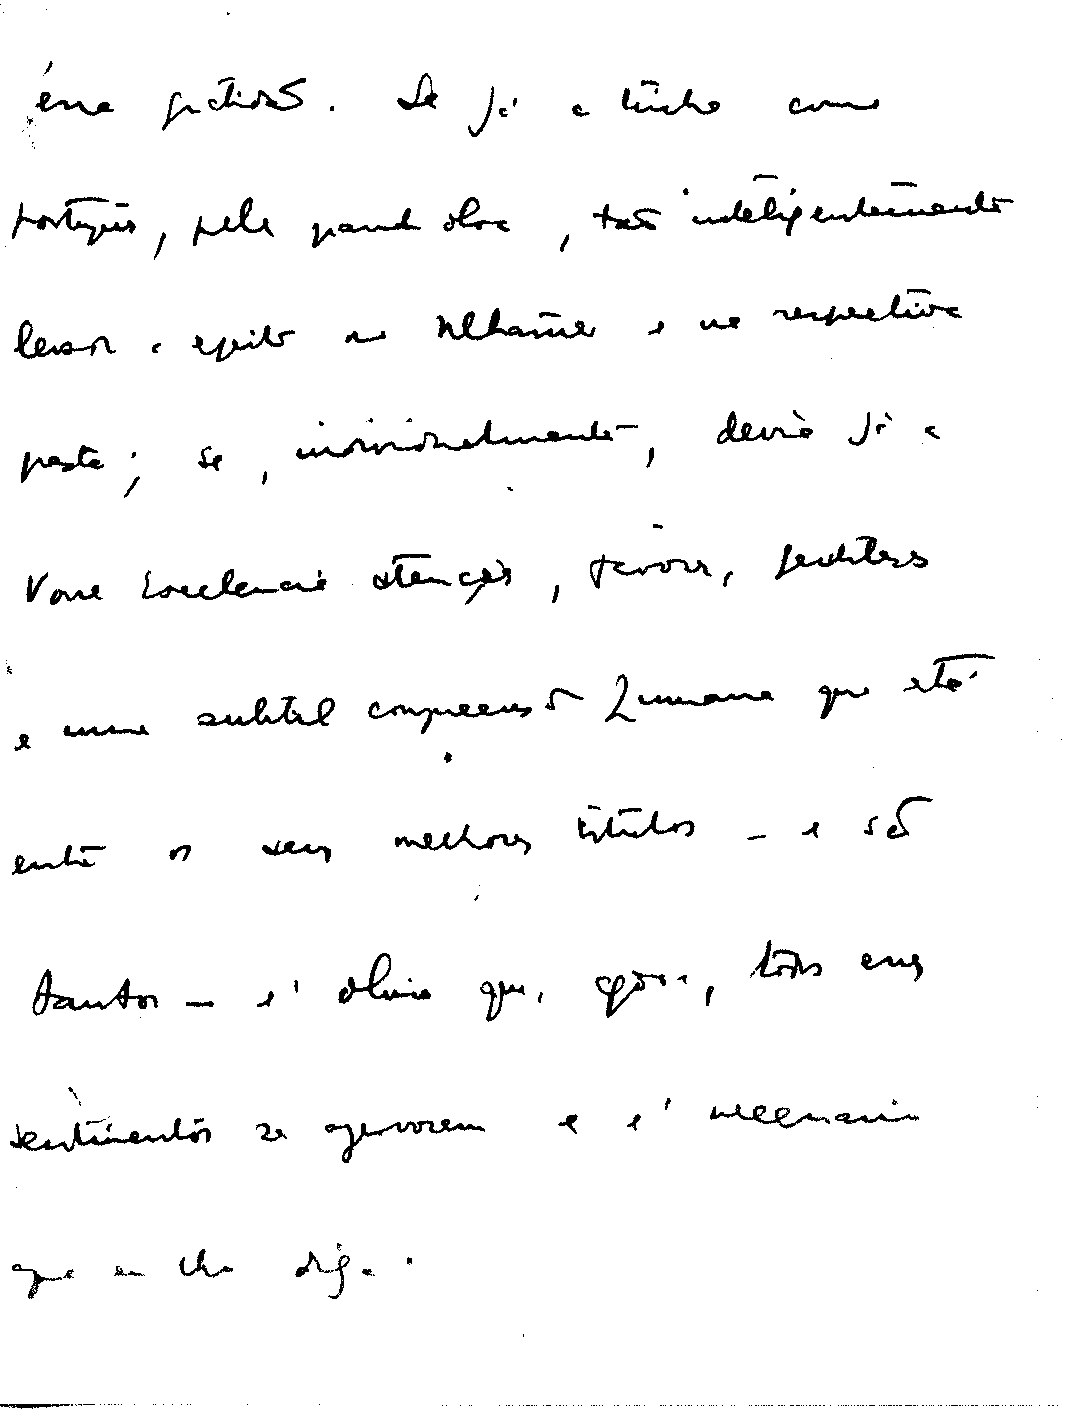 essa gratidão. Se já a tinha como
português, pela grande obra, tão inteligentemente
levou a efeito no Ultramar e na respectiva
pasta; se, individualmente, devia já a
Vossa Excelencia atenções, favores, gentilezas
e uma subtil compreensão humana que está
entre os seus melhores titulos — e são
tantos — é óbvio que, agora, todos esses
sentimentos se agravaram e é necessario
que eu lho diga.